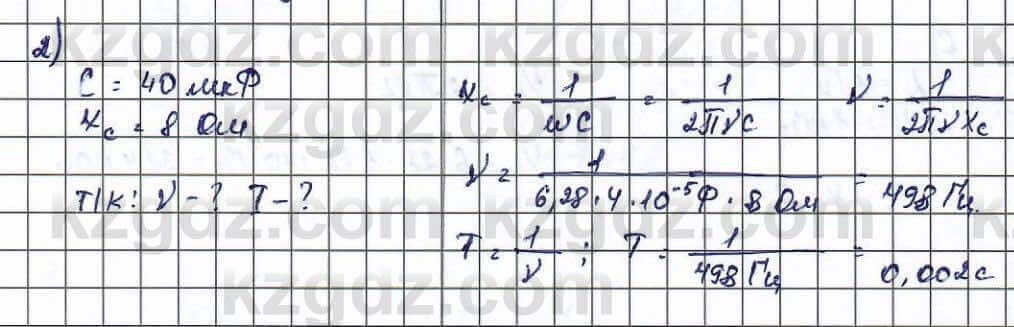 2)
C = 40 мкФ
Xc = 8 Ом
Xc = 1/ωC = 1/2πνC ν = 1/2πνXc
Т/к: ν - ? T - ?
ν = 1/6,28·4·10⁻⁵Ф·8 Ом = 498 Гц
T = 1/ν ; T = 1/498 Гц = 0,002с
kzgdz.com kzgdz.com
kzgdz.com kzgdz.com
kzgdz.com kzgdz.com
kzgdz.com kzgdz.com